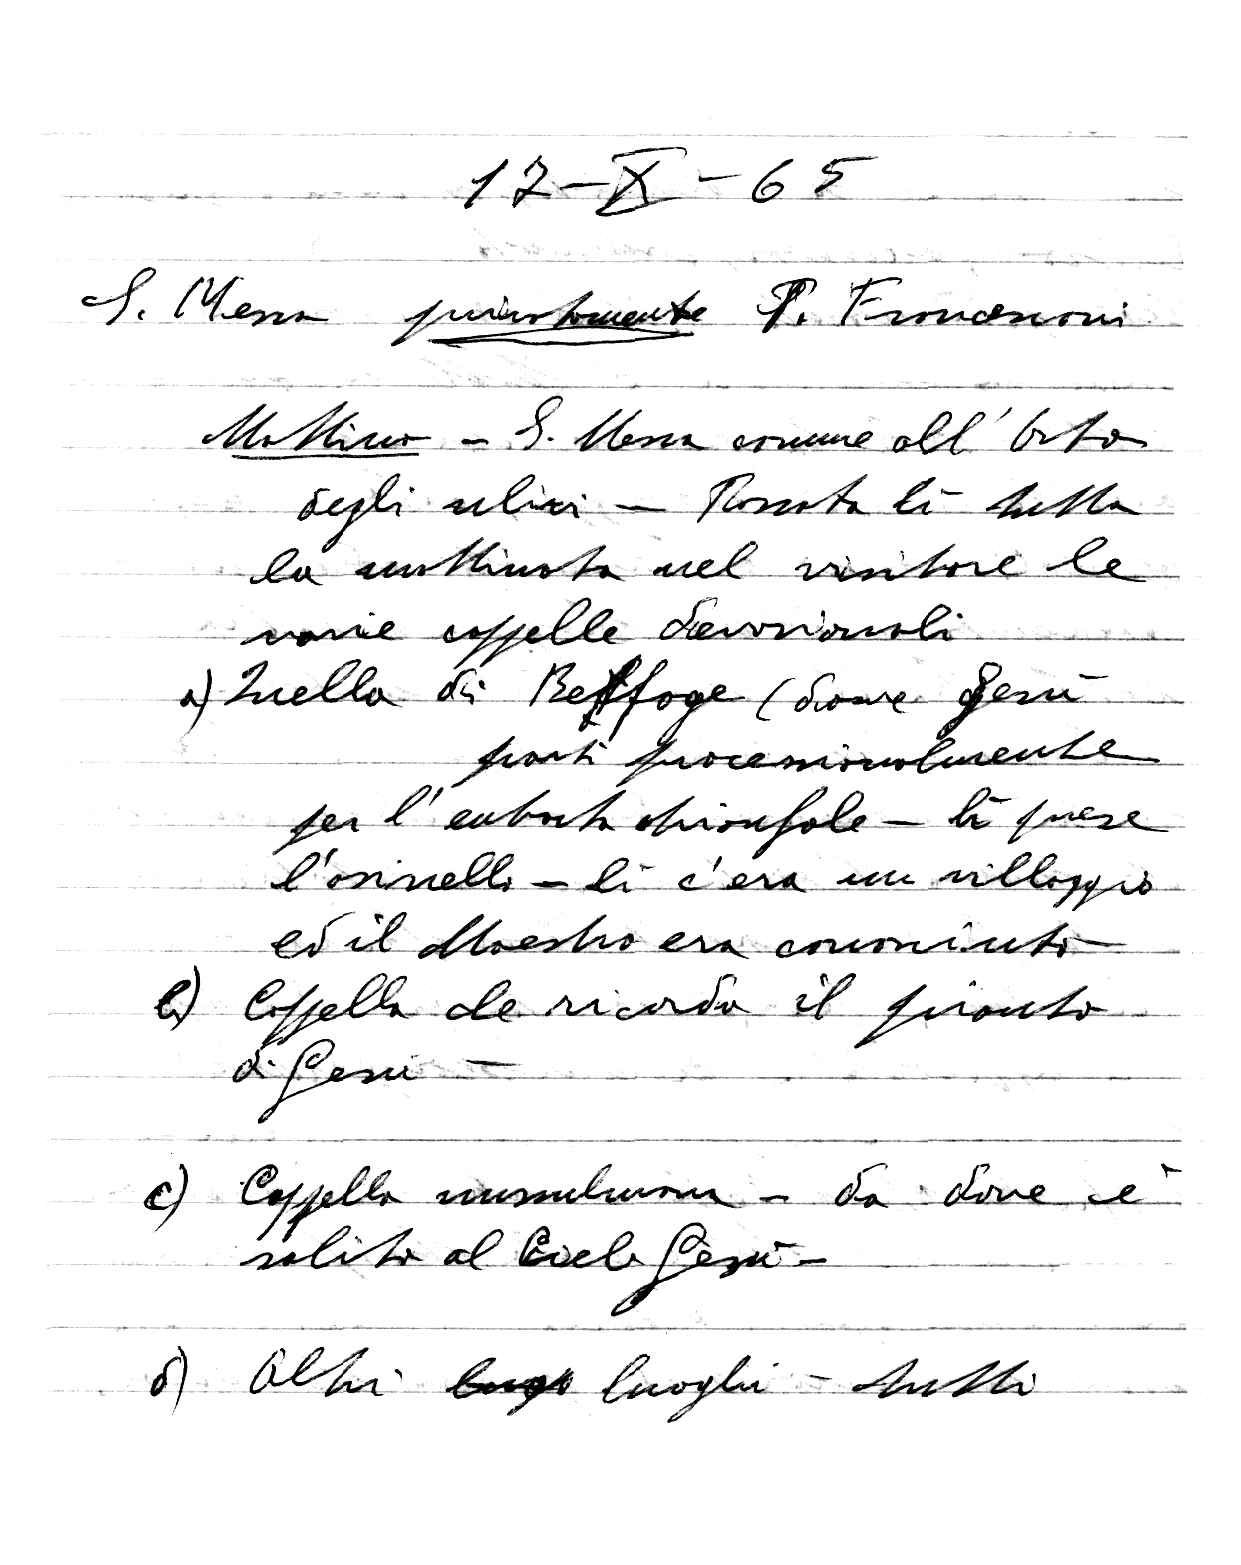 12-X-65
S. Messa privatamente P. Francescani
Mattino - S. Messa comune all'Orto
degli ulivi - Passata lì tutta
la mattinata nel visitare le
varie cappelle devozionali
a) Quella di Betfage (dove Gesù
partì processionalmente
per l'entrata trionfale - lì prese
l'asinello - lì c'era un villaggio
ed il Maestro era conosciuto
b) Cappella che ricorda il pianto
di Gesù -
c) Cappella mussulmana - da dove è
salito al Cielo Gesù -
d) Altri luoghi - tutti